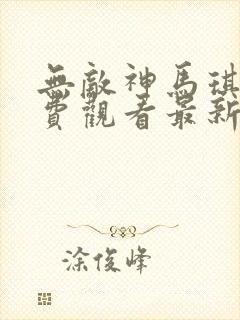 無敵神馬琪
費觀看最新
涂俊峰